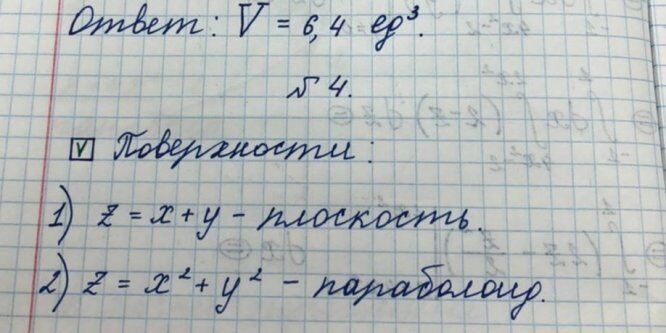 Ответ: V = 6,4 ед³.
№ 4.
V Поверхности:
1) z = x + y – плоскость.
2) z = x² + y² – параболоид.